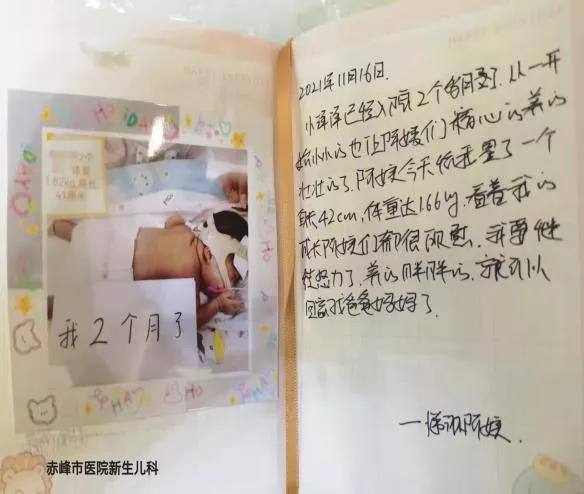 2个
体重
1.82kg,身长
41厘米
我2个月了
赤峰市医院新生儿科
2021年11月16日.
已经入院2个月了.从一开
始小小的也让阿姨们精心的养的
壮壮的了.阿姨今天给我量了一个
身长42cm,体重达1.66kg.看着我的
成长阿姨们都很欣慰.我要继
续努力了.养的胖胖的.就可以
回家找爸爸妈妈了.
阿姨.